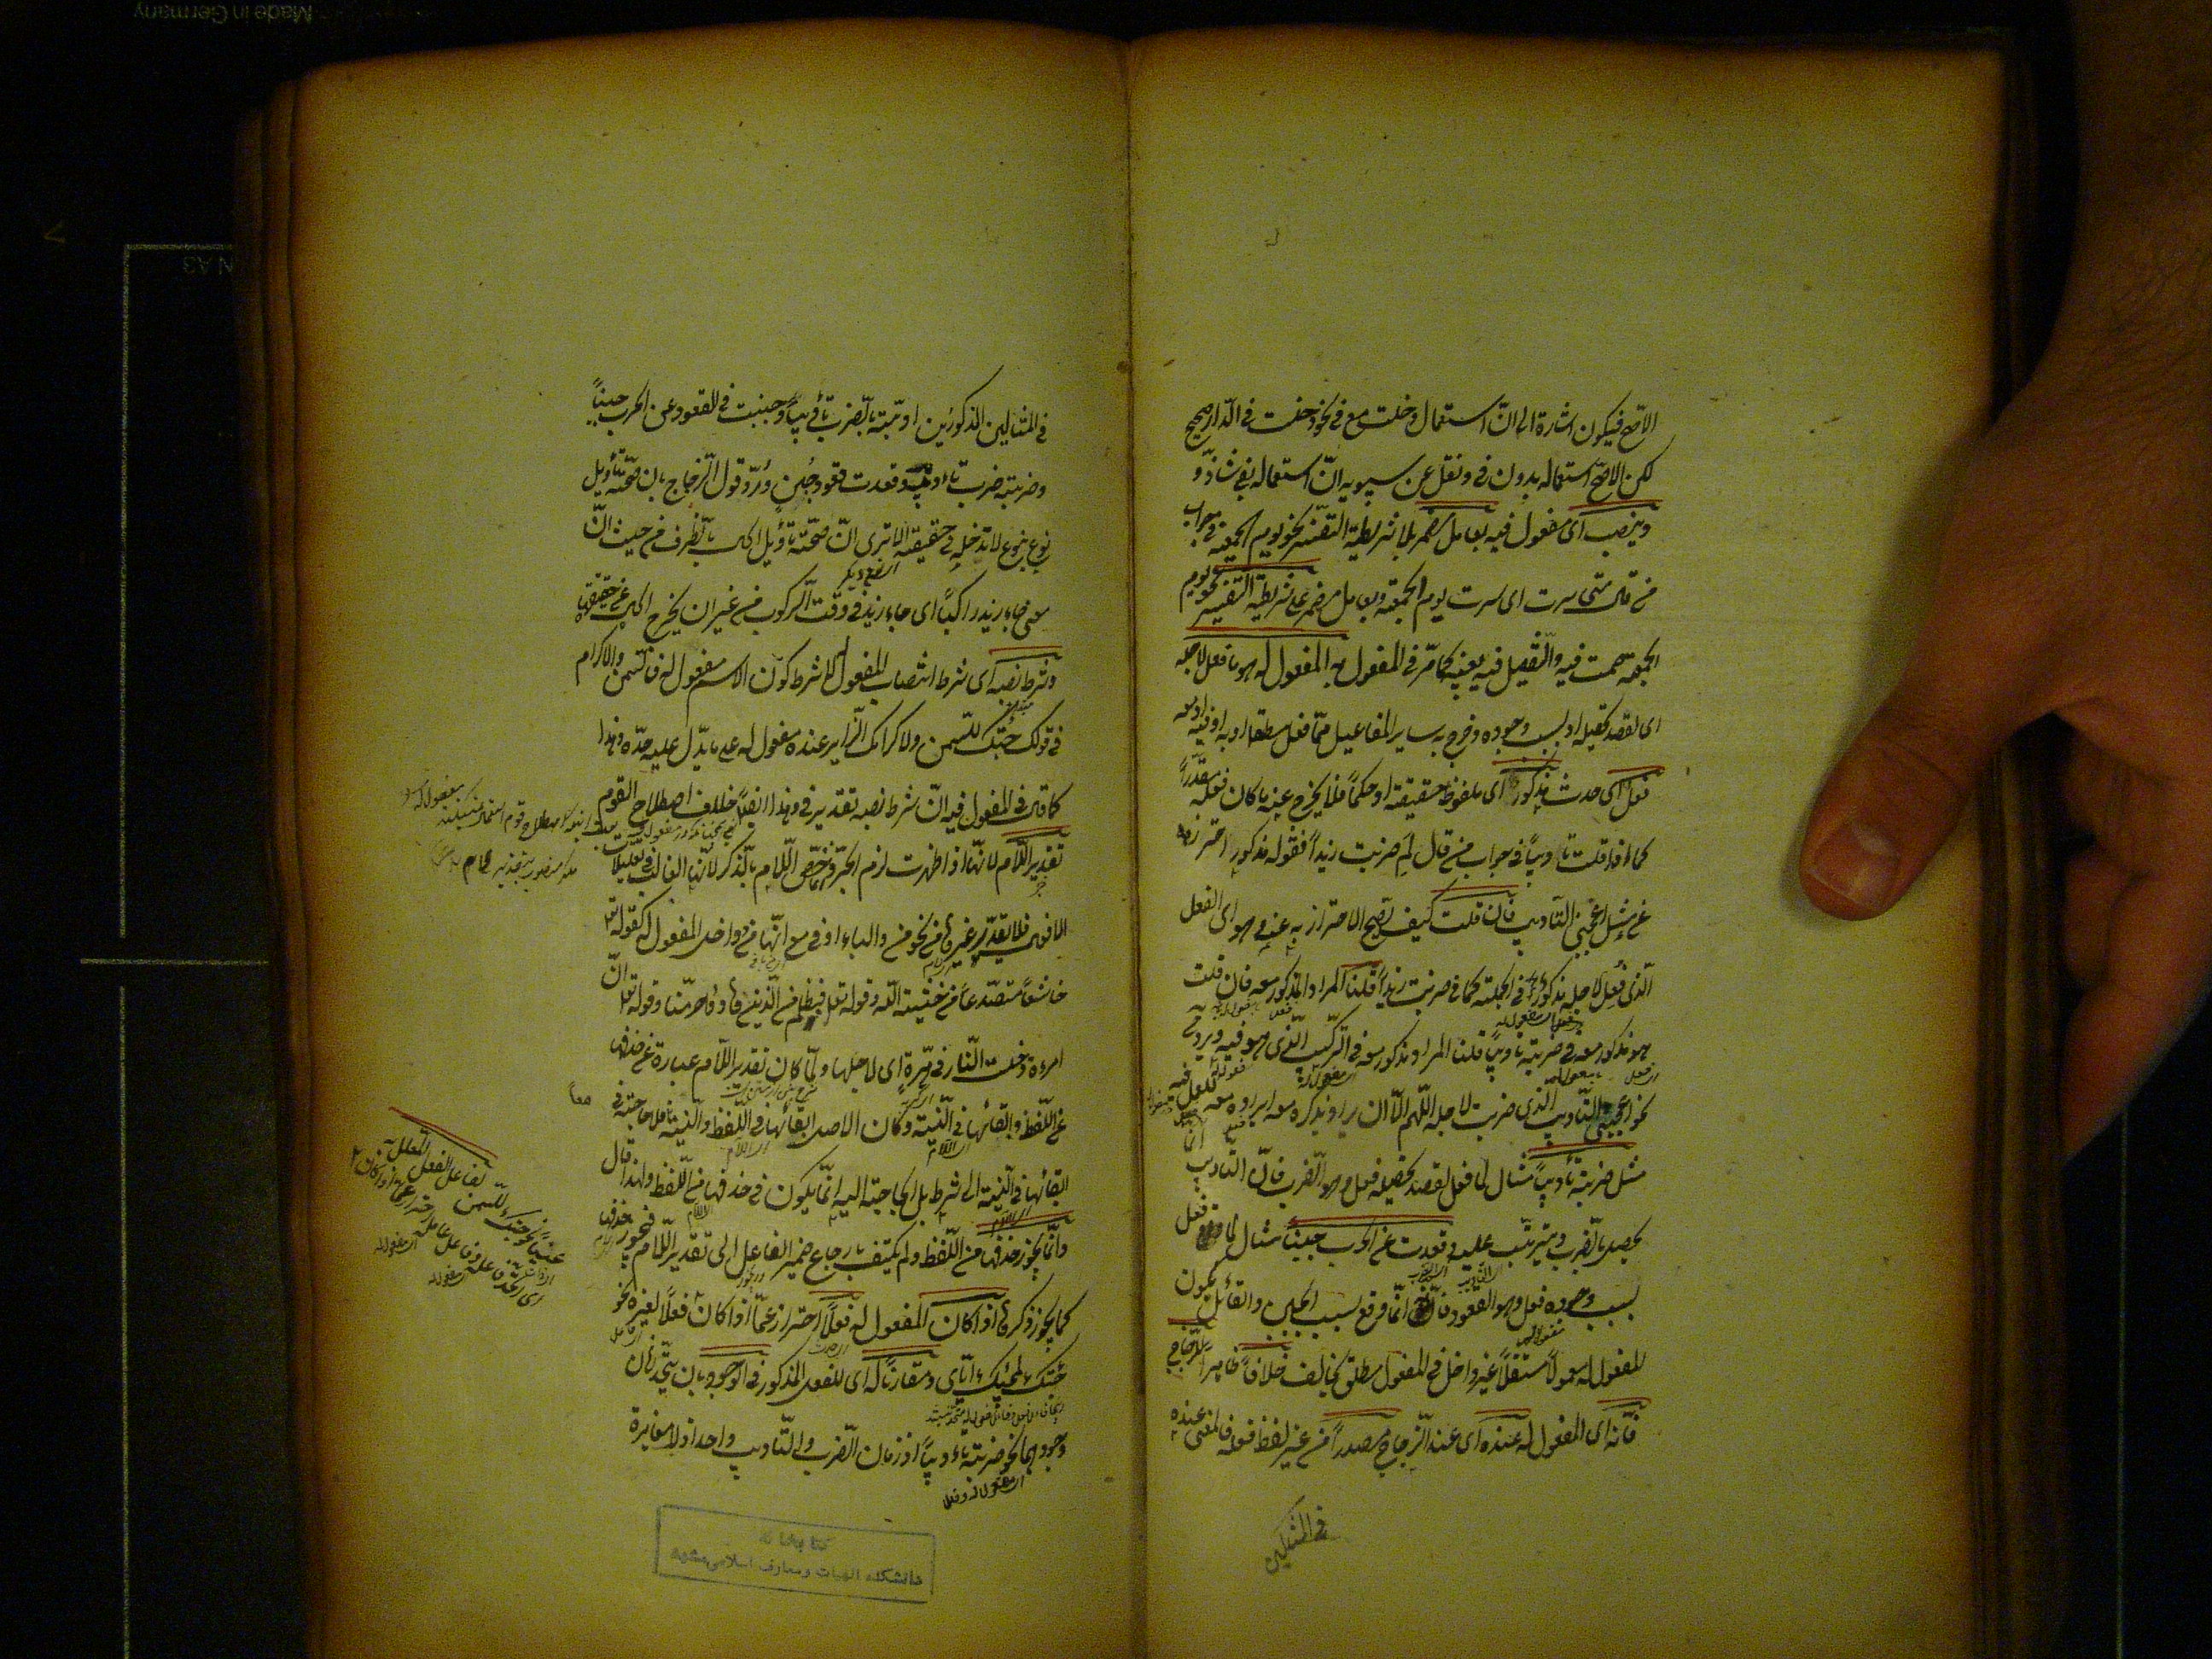 الاصح فيكون اشارة الى انّ استعمال دخلت مع فى نحو دخلت فى الدّار صحيح
لكن الاصحّ استعماله بدون فى ونقل عن سيبويه انّ استعماله بفى شاذّ و
وينصب اى مفعول فيه بعامل مضمر بلا شريطة التفسير نحو يوم الجمعة فى جواب
من قال متى سرت اى سرت يوم الجمعة وبعامل مضمر على شريطة التفسير نحو يوم
الجمعة صمت فيه والتّفصيل فيه بعينه كما مرّ فى المفعول به المفعول له هو ما فعل لاجله
اى لقصد تحصيله او بسبب وجوده وخرج به ساير المفاعيل ممّا فعل مطلقا او به او فيه او معه
فعل اى حدث مذكور اى ملفوظ حقيقة او حكماً فلا يخرج عنه ما كان فعله مقدّراً
كما اذا قلت تاديباً فى جواب من قال لم ضربت زيداً فقوله مذكور احتراز
عن مثل اعجبنى التّاديب فان قلت كيف يصح الاحتراز به عنه وهو اى الفعل
الّذى فُعل لاجله مذكور فى الجملة كما فى ضربت زيداً قلنا المراد المذكور معه فان قلت
هو مذكور معه فى ضربته تاديباً قلنا المراد مذكور معه فى التّركيب الّذى هو فيه ويرد ح
نحو اعجبنى التّاديب الّذى ضربت لاجله اللّهم الّا ان يراد بذكره معه ايراده معه للعمل فيه
مثل ضربته تأديباً مثال لما فعل لقصد تحصيله فعل وهو الضّرب فانّ التّاديب انّما
يحصل بالضّرب ويترتّب عليه وقعدت عن الحرب جبناً مثال لما فعل
بسبب وجوده فعل وهو القعود فانّه انّما وقع بسبب الجبن والقائل بكون
المفعول له معمولاً مستقلّاً غير داخل فى المفعول مطلق يخالف خلافاً ظاهراً للزّجاج
فانّه اى المفعول له عنده اى عند الزّجاج مصدراً من غير لفظ فعله فالمعنى عنده
فى المثالين
فى المثالين المذكورين ادّبته بالضّرب تأديباً وجبنت فى القعود عن الحرب جبناً
وضربته ضرب تاديب وقعدت قعود جُبن ورُدّ قول الزّجاج بان صحّة تأويل
نوع بنوع لا تدخله فى حقيقته الا ترى انّ صحّة تأويل الحال بالظّرف من حيث انّ
معنى جاء زيد راكباً اى جاء زيد فى وقت الرّكوب من غير ان يخرج الحال عن حقيقتها
وشرط نصبه اى شرط انتصاب المفعول له لا شرط كون الاسم مفعول له فالسّمن والاكرام
فى قولك جئتك للسّمن ولاكرامك الزّاير عنده مفعول له على ما يدّل عليه حدّه وهذا
كما قال فى المفعول فيه انّ شرط نصبه تقدير فى وهذا ايضاً خلاف اصطلاح القوم
تقدير اللّام لانّها اذا ظهرت لزم الجرّ وخصّ اللّام بالذّكر لانّها الغالب فى تعليلات
الافعال فلا يقدّر غيرها من نحو من والباء او فى مع انّها من دواخل المفعول له كقوله تعالى
خاشعاً متصدّعاً من خشية الله وقوله تعالى فبظلم من الّذين هادوا حرّمنا وقوله انّ
امرءة دخلت النّار فى هرّة اى لاجلها ولمّا كان تقدير اللّام عبارة عن حذفها
عن اللّفظ وابقائها فى النّية وكان الاصل ابقائها فى اللّفظ والنّية فلا حاجة فى
ابقائها فى النّية الى شرط بل الحاجة اليه انّما يكون فى حذفها من اللّفظ ولهذا قال
وانّما يجوز حذفها من اللّفظ ولم يكتف بارجاع ضمير الفاعل الى تقدير اللّام فيجوز حذفها
كما يجوز ذكرها اذا كان المفعول له فعلاً احتراز عمّا اذا كان فعلاً لغيره نحو
جئتك لمجيئك ايّاى ومقارناً له اى للفعل المذكور فى الوجود بان يتّحد زمان
وجودهما نحو ضربته تاديباً اذ زمان الضّرب والتّاديب واحد اذ لا مغايرة
كتابخانه
دانشكده الهيات ومعارف اسلامى مشهد
Made in Germany